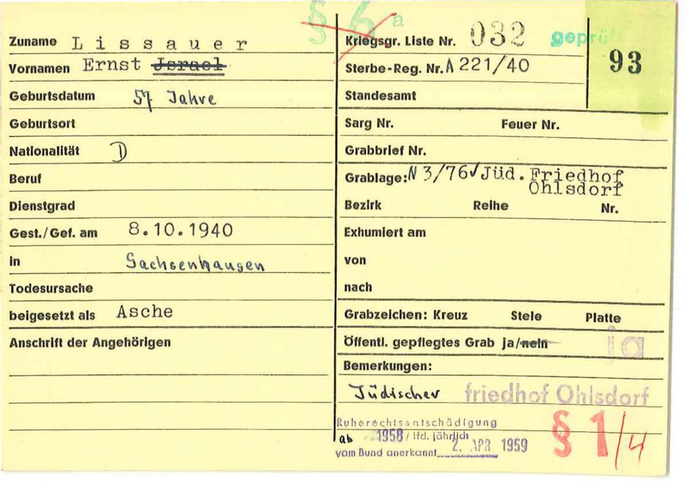 § 6 a
Zuname Lissauer
Vornamen Ernst Israel
Geburtsdatum 57 Jahre
Geburtsort
Nationalität D
Beruf
Dienstgrad
Gest./Gef. am 8.10.1940
in Sachsenhausen
Todesursache
beigesetzt als Asche
Anschrift der Angehörigen
Kriegsgr. Liste Nr. 032 geprüft
93
Sterbe-Reg. Nr. A 221/40
Standesamt
Sarg Nr. Feuer Nr.
Grabbrief Nr.
Grablage: N 3/76 ✓ Jüd. Friedhof
Ohlsdorf
Bezirk Reihe Nr.
Exhumiert am
von
nach
Grabzeichen: Kreuz Stele Platte
Öffentl. gepflegtes Grab ja/nein ja
Bemerkungen:
Jüdischer friedhof Ohlsdorf
Ruherechtsentschädigung
ab 1958 / lfd. jährlich
vom Bund anerkannt 2. APR 1959
§ 1/4